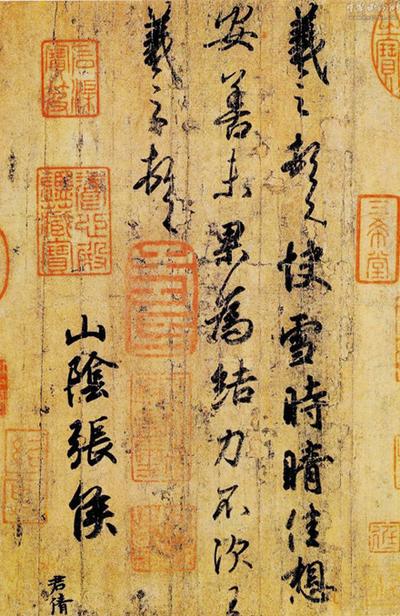 羲之頓首快雪時晴佳想
安善未果為結力不次王
羲之頓首
山陰張侯
君倩
三希堂
石渠寶笈
養心殿鑑藏寶